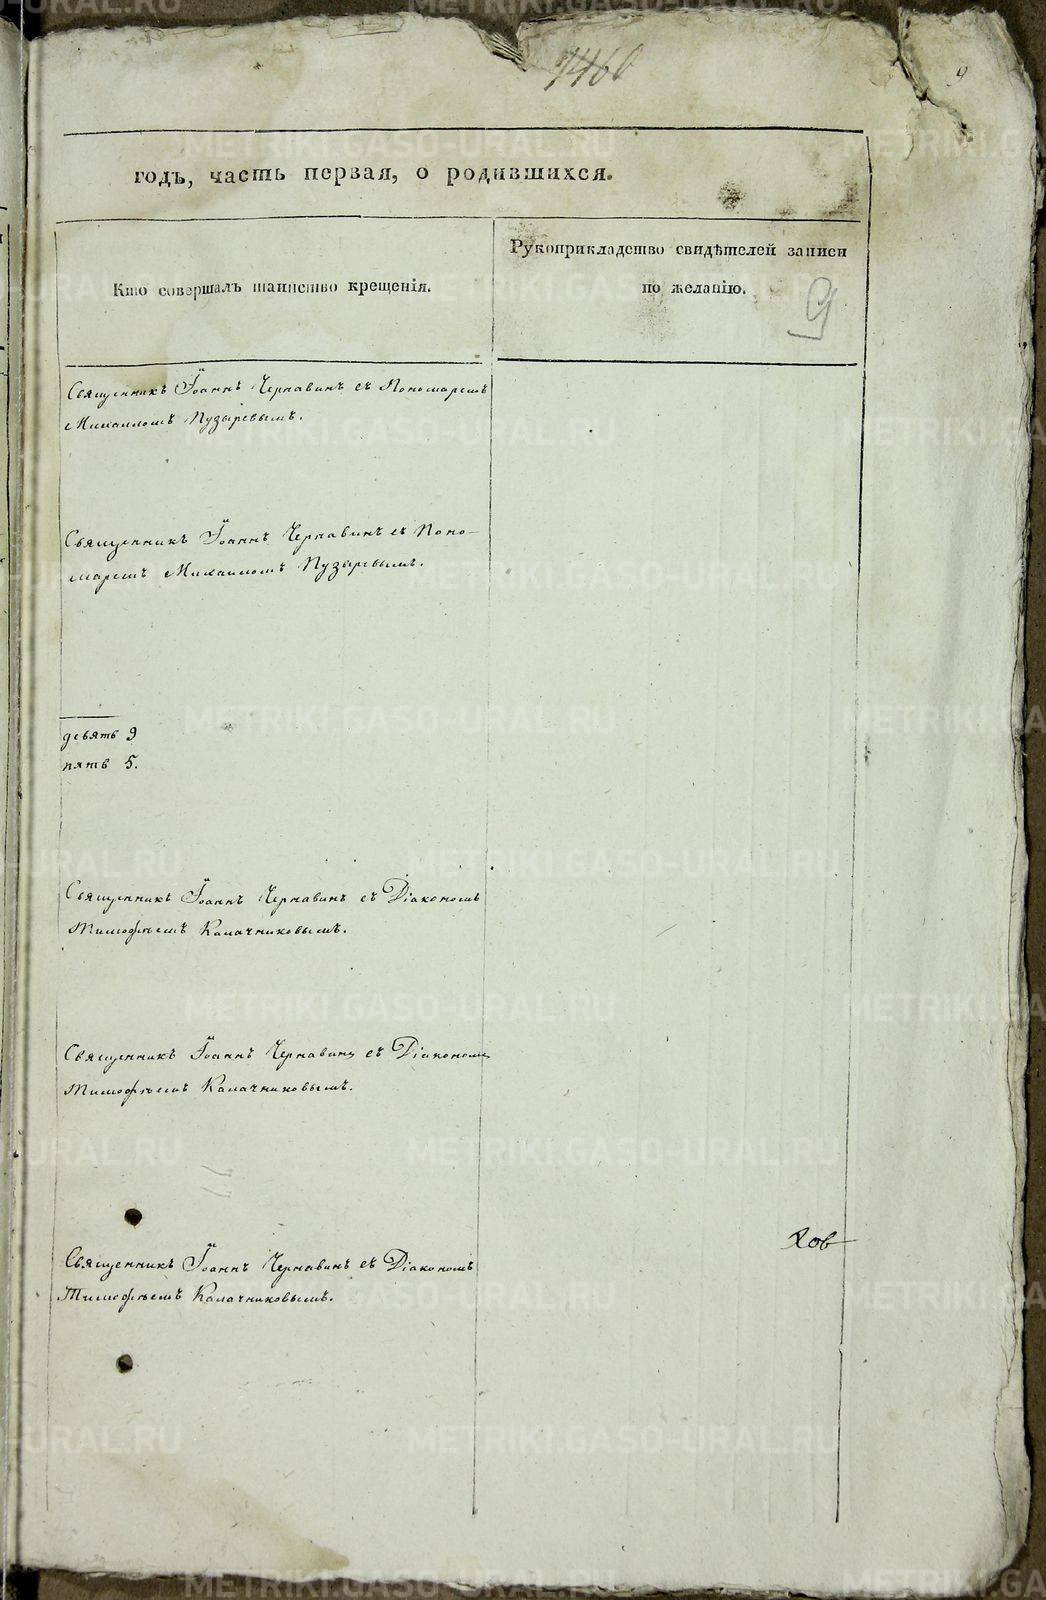 7460
9
годъ, часть первая, о родившихся.
Кто совершалъ таинство крещенія.
Рукоприкладство свидѣтелей записи
по желанію.
9
Священникъ Іоаннъ Чернавинъ съ Пономаремъ
Михаиломъ Пузыревымъ.
Священникъ Іоаннъ Чернавинъ съ Поно-
маремъ Михаиломъ Пузыревымъ.
девять 9
пять 5.
Священникъ Іоаннъ Чернавинъ съ Діакономъ
Тимофѣемъ Калачниковымъ.
Священникъ Іоаннъ Чернавинъ съ Діакономъ
Тимофѣемъ Калачниковымъ.
ков
Священникъ Іоаннъ Чернавинъ съ Діакономъ
Тимофѣемъ Калачниковымъ.
METRIKI.GASO-URAL.RU